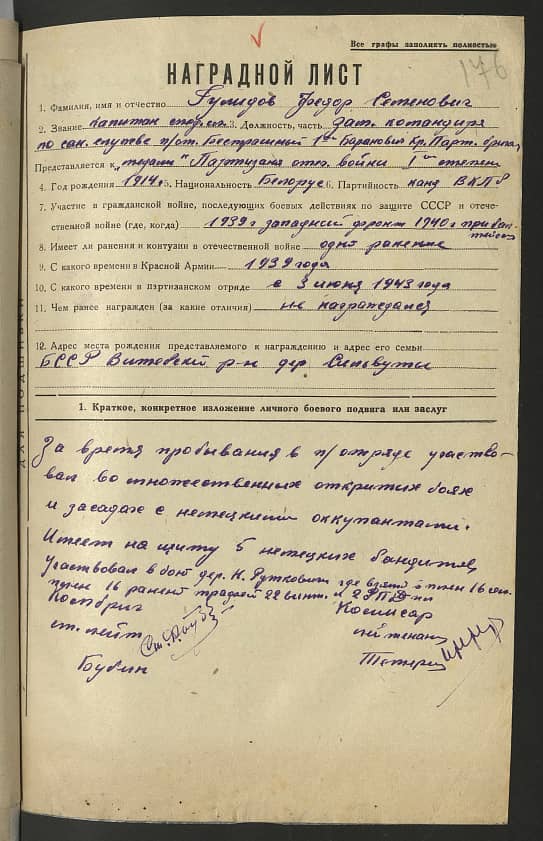 Все графы заполнять полностью
176
НАГРАДНОЙ ЛИСТ
1. Фамилия, имя и отчество Гулидов Федор Семенович
2. Звание капитан 3. Должность, часть зам. командира
по сан. службе п/от. Бестрашный 1ой Баранович Кр. Парт. бригад
Представляется к "медали" Партизана отеч. войны I ой степени
4. Год рождения 1914 г. 5. Национальность Белорус 6. Партийность канд ВКПб
7. Участие в гражданской войне, последующих боевых действиях по защите СССР и отече-
ственной войне (где, когда) 1939 г западный фронт 1940 г
8. Имеет ли ранения и контузии в отечественной войне одно ранение
9. С какого времени в Красной Армии 1939 года
10. С какого времени в партизанском отряде с 3 июня 1943 года
11. Чем ранее награжден (за какие отличия) не награждался
12. Адрес места рождения представляемого к награждению и адрес его семьи
БССР Витебский р-н дер.
1. Краткое, конкретное изложение личного боевого подвига или заслуг
За время пробывания в п/отряде участво-
вал во множественных открытых боях
и засадах с немецкими оккупантами.
Имеет на щиту 5 немецких бандитов,
Участвовал в бою дер. Н. Рутковичи где взято в плен 16
16 ранено трофей 22 винт. и 2 РПД
Комбриг Комиссар
ст. лейт лейтенант
Бубин